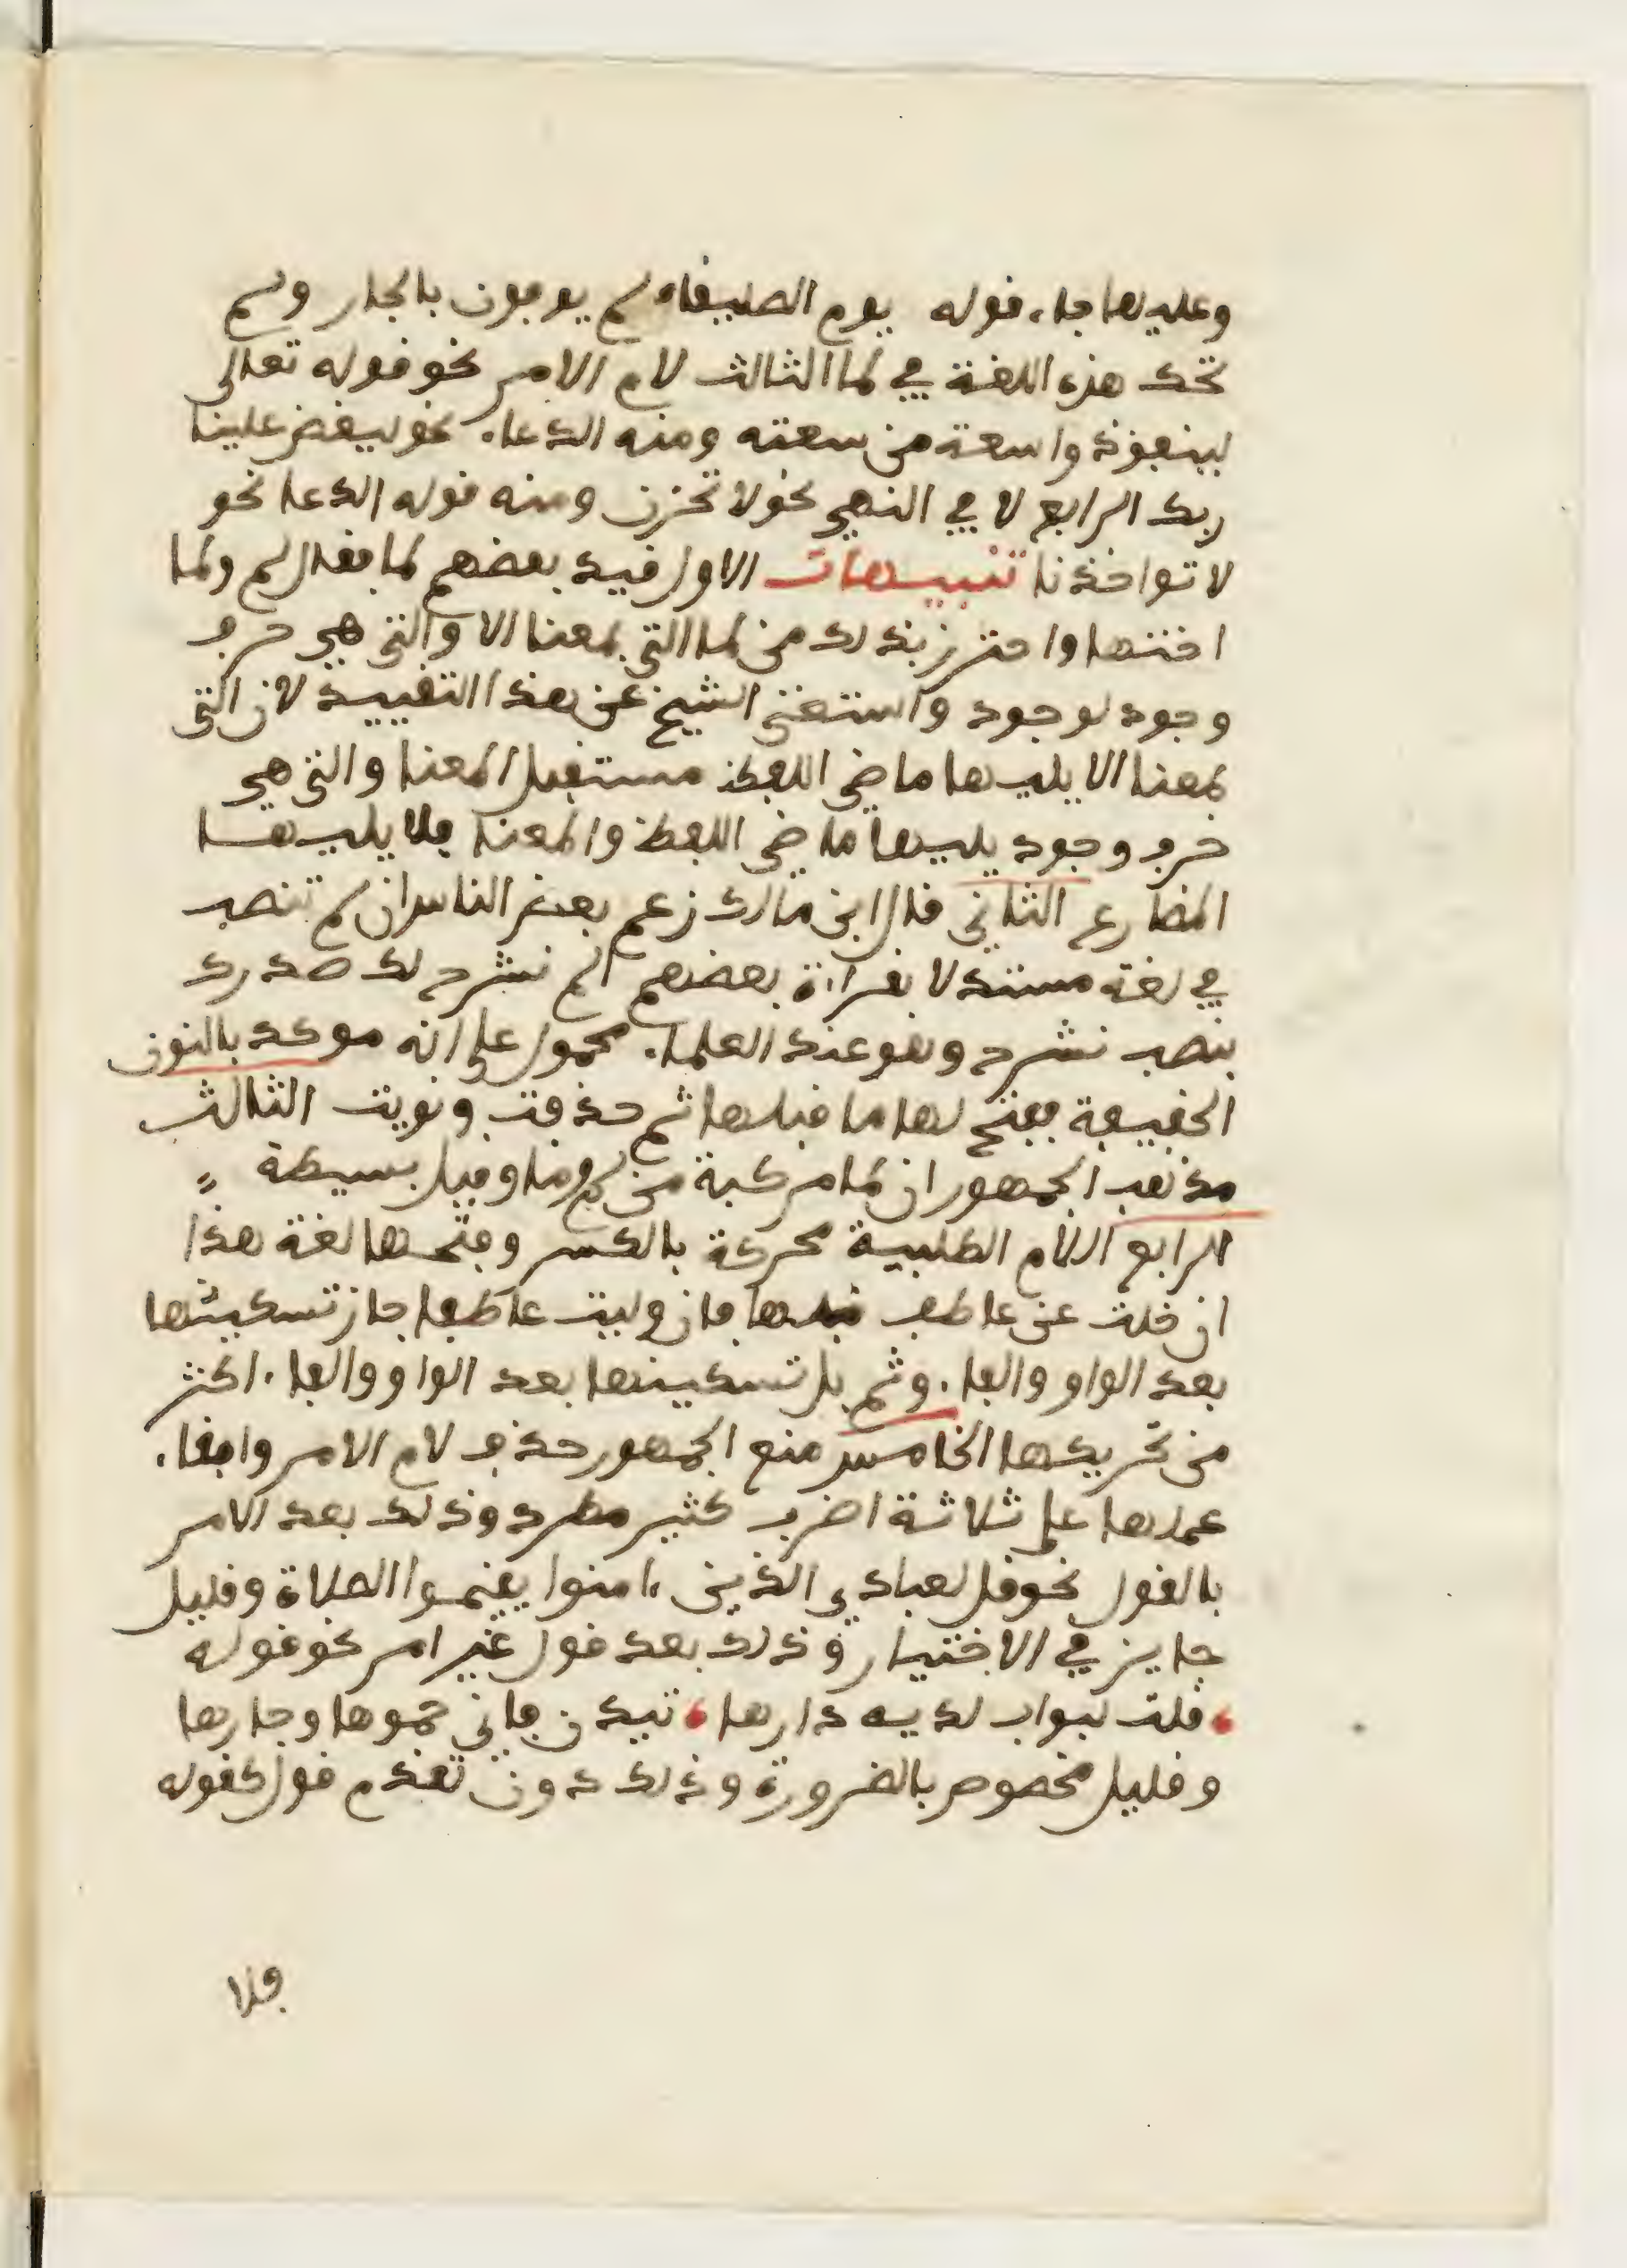 وعليها جاء قوله يوم الصليفاء لم يوفون بالجار ولم
تحك هذه اللغة في لما الثالث لام الامر نحو قوله تعالى
لينفق ذو اسعة من سعته ومنه الدعاء نحو ليقض علينا
ربك الرابع لا في النهي نحو لا تحزن ومنه قوله الدعا نحو
لا تواخذنا تنبيهات الاول قيد بعضهم لما فقال لم ولما
اختها واحترز بذلك من لما التي بمعنا الا والتي هي حرف
وجود لوجود واستغنى الشيخ عن هذا التقييد لان التي
بمعنا الا يليها ماضي اللفظ مستقبل المعنا والتي هي
حرف وجود يليها ماضي اللفظ والمعنا فلا يليها
المضارع الثاني قال ابن مالك زعم بعض الناس ان لم تنصب
في لغة مستدلا بقراءة بعضهم الم نشرح لك صدرك
بنصب نشرح وهو عند العلماء محمول على انه موكد بالنون
الخفيفة ففتح لها ما قبلها ثم حذفت ونويت الثالث
مذهب الجمهور ان لما مركبة من لم وما وقيل بسيطة
الرابع اللام الطلبية محركة بالكسر وفتحها لغة هذا
ان خلت عن عاطف قبلها فان وليت عاطفا جاز تسكينها
بعد الواو والفاء وثم بل تسكينها بعد الواو والفاء اكثر
من تحريكها الخامس منع الجمهور حذف لام الامر وابقاء
عملها على ثلاثة اضرب كثير مطرد وذلك بعد الامر
بالقول نحو قل لعبادي الذين ءامنوا يقيموا الصلاة وقليل
جايز في الاختيار وذلك بعد قول غير امر نحو قوله
قلت لبواب لديه دارها تيذن فاني حموها وجارها
وقليل مخصوص بالضرورة وذلك دون تقدم قول كقوله
فلا